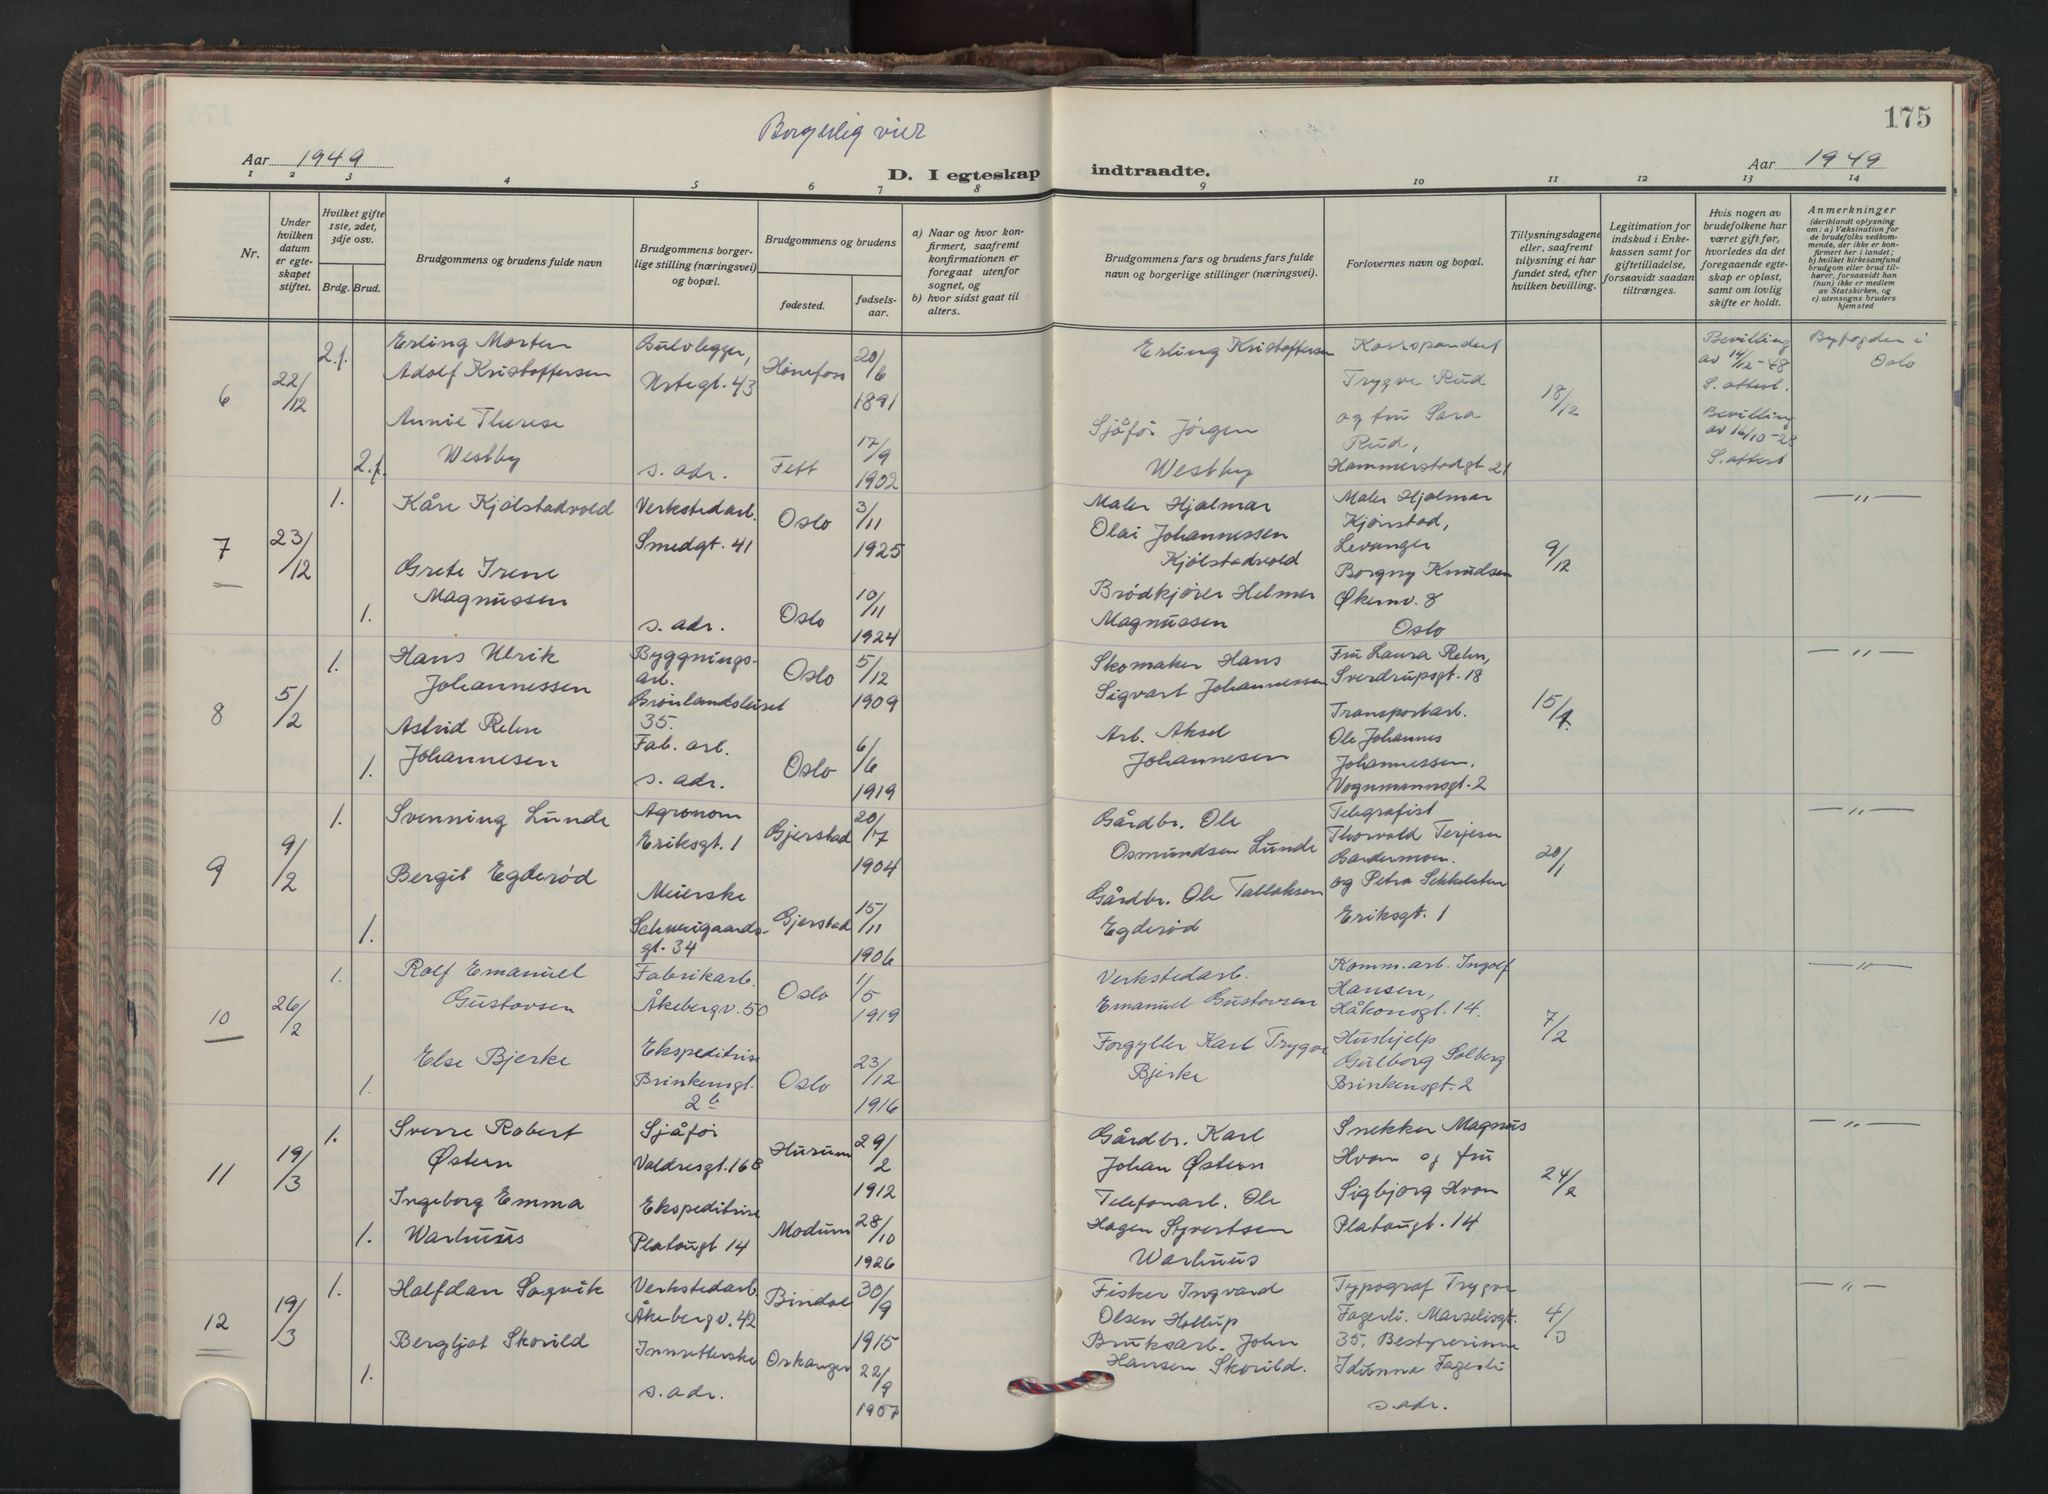 175
Borgerlig viet
Aar 1949
D. I egteskap indtraadte.
Aar 1949
1 2 3 4 5 6 7 8 9 10 11 12 13 14
Nr.
Under hvilken datum er egteskapet stiftet.
Hvilket gifte 1ste, 2det, 3dje osv.
Brdg. Brud.
Brudgommens og brudens fulde navn
Brudgommens borgerlige stilling (næringsvei) og bopæl.
Brudgommens og brudens
fødested.
fødselsaar.
a) Naar og hvor konfirmert, saafremt konfirmationen er foregaat utenfor sognet, og
b) hvor sidst gaat til alters.
Brudgommens fars og brudens fars fulde navn og borgerlige stillinger (næringsvei).
Forlovernes navn og bopæl.
Tillysningsdagene eller, saafremt tillysning ei har fundet sted, efter hvilken bevilling.
Legitimation for indskud i Enkekassen samt for giftetilladelse, forsaavidt saadan tiltrænges.
Hvis nogen av brudefolkene har været gift før, hvorledes da det foregaaende egteskap er opløst, samt om lovlig skifte er holdt.
Anmerkninger
(deriblandt oplysning om: a) Vaksination for de brudefolks vedkommende, der ikke er konfirmert her i landet; b) hvilket kirkesamfund brudgom eller brud tilhører, forsaavidt han (hun) ikke er medlem av Statskirken, og c) utensogns bruders hjemsted
6
22/12
2.
Erling Morten
Adolf Kristoffersen
Gulvlegger,
Urtegt. 43
Hønefoss
20/6
1891
Erling Kristoffersen
Korrespondent
Trygve Rud
og fru Sara
Rud,
Hammerstadgt 21
18/12
Bevilling
av 14/12-48
S. attest.
Byfogden i
Oslo
2.
Annie Therese
Westby
s. adr.
Fett
17/9
1902
Sjåfør Jörgen
Westby
Bevilling
av 16/10-28
S. attest
7
23/12
1.
Kåre Kjölstadvold
Verkstedarb.
Smedgt. 41
Oslo
3/11
1925
Maler Hjalmar
Olai Johannessen
Kjölstadvold
Maler Hjalmar
Kjönstad,
Levanger
Borgny Knudsen
Økernv. 8
Oslo
9/12
— " —
1.
Grete Irene
Magnussen
s. adr.
Oslo
10/11
1924
Brödkjører Helmer
Magnussen
8
5/2
1.
Hans Ulrik
Johannessen
Byggnings-
arb.
Grönlandsleiret
35.
Oslo
5/12
1909
Skomaker Hans
Sigvart Johannessen
Fru Laura Rehn,
Sverdrupsgt. 18
Transportarb.
Ole Johannes
Johannessen.
Vognmannsgt. 2
15/1
— " —
1.
Astrid Rehn
Johannesen
Fab. arb.
s. adr.
Oslo
6/6
1919
Arb. Aksel
Johannesen
9
9/2
1.
Svenning Lunde
Agronom
Eriksgt. 1
Gjerstad
20/7
1904
Gårdbr. Ole
Osmundsen Lunde
Telegrafist
Thorvald Terjesen
Gardermoen.
og Petra Sekkelsten
Eriksgt. 1
20/1
— " —
1.
Bergit Egderød
Meierske
Schweigaards-
gt. 34
Gjerstad
15/11
1906
Gårdbr. Ole Tallaksen
Egderöd
10
26/2
1.
Rolf Emanuel
Gustavsen
Fabrikarb.
Åkebergv. 50
Oslo
1/5
1919
Verkstedarb.
Emanuel Gustavsen
Komm. arb. Ingolf
Hansen,
Håkonsgt. 14.
Hushjelp
Gulborg Solberg
Brinkensgt. 2
7/2
— " —
1.
Else Bjerke
Ekspeditrise
Brinkensgt.
2b
Oslo
23/12
1916
Forgyller Karl Trygve
Bjerke
11
19/3
1.
Sverre Robert
Østern
Sjåfør
Valdresgt. 16B
Hurum
29/2
1912
Gårdbr. Karl
Johan Østern
Snekker Magnus
Hvam og fru
Sigbjorg Hvam
Platougt. 14
24/2
— " —
1.
Ingeborg Emma
Warhuus
Ekspeditrise
Platougt 14
Modum
28/10
1926
Telefonarb. Ole
Hagen Syvertsen
Warhuus
12
19/3
1.
Halfdan Sagvik
Verkstedarb.
Åkebergv. 42
Bindal
30/9
1915
Fisker Ingvard
Olsen Hollup
Typograf Trygve
Fagerli. Marselisgt.
35. Bestyrerinne
Idunna Fagerli
s. adr.
4/3
— " —
1.
Bergljot Skorild
Innsetterske
s. adr.
Orkanger
22/9
1907
Bruksarb. John
Hansen Skorild.